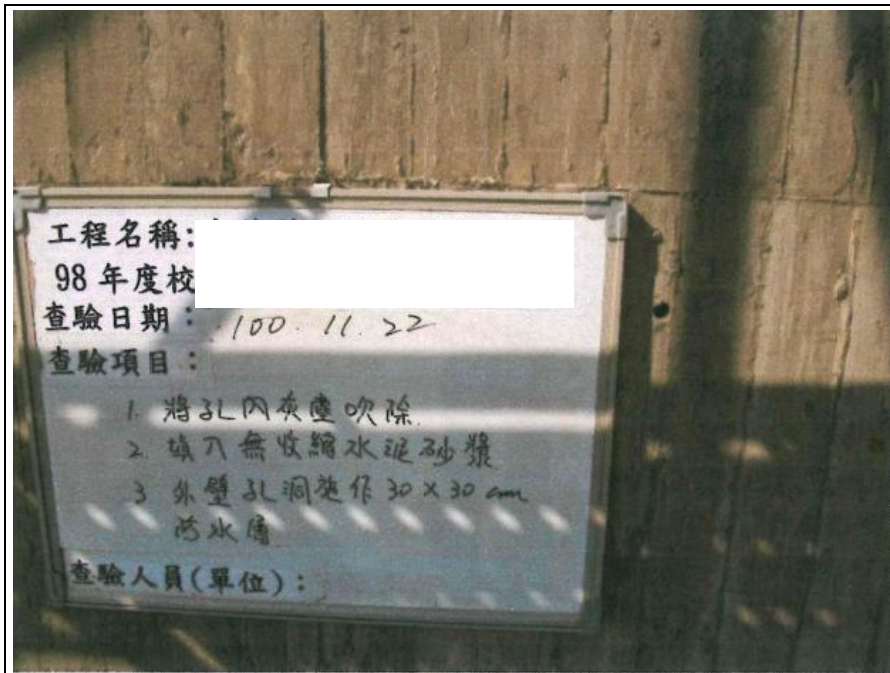 工程名稱:
98 年度校
查驗日期：100.11.22
查驗項目：
1. 將孔內灰塵吹除
2. 填入無收縮水泥砂漿
3 外壁孔洞施作 30 × 30 cm
防水層
查驗人員(單位)：